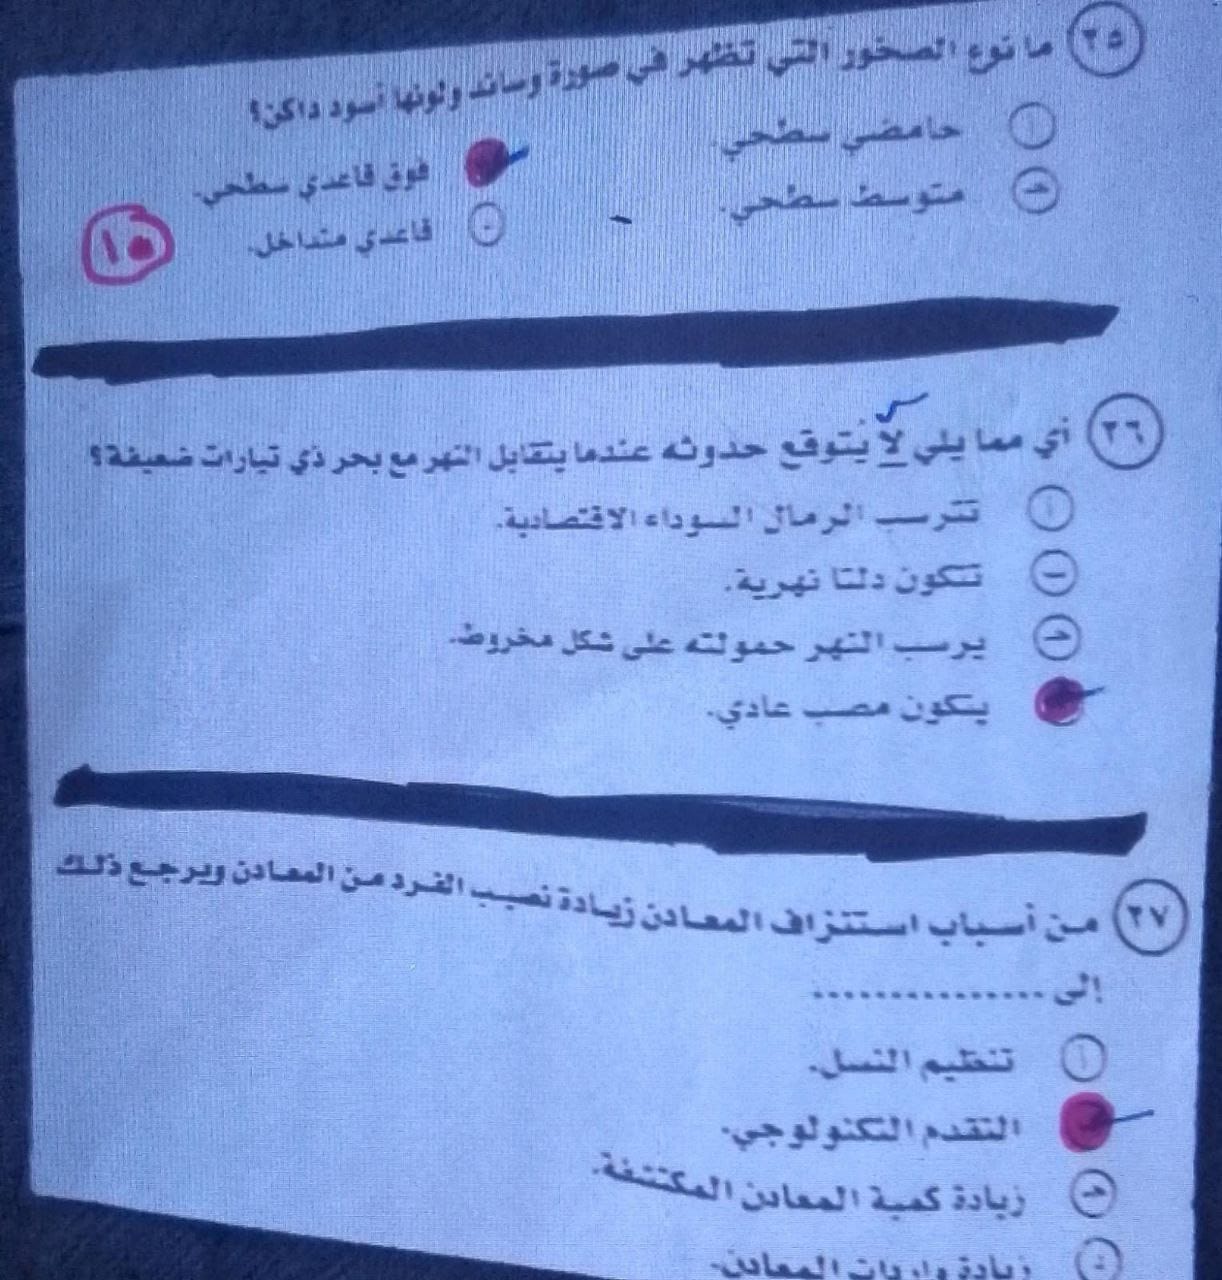 ٢٥ ما نوع الصخور التي تظهر في صورة وسائد ولونها أسود داكن؟
أ حامضي سطحي. فوق قاعدي سطحي.
جـ متوسط سطحي. د قاعدي متداخل.
١٥
٢٦ أي مما يلي لا يُتوقع حدوثه عندما يتقابل النهر مع بحر ذي تيارات ضعيفة؟
أ تترسب الرمال السوداء الاقتصادية.
ب تتكون دلتا نهرية.
جـ يرسب النهر حمولته على شكل مخروط.
يتكون مصب عادي.
٢٧ من أسباب استنزاف المعادن زيادة نصيب الفرد من المعادن ويرجع ذلك
إلى ...............
أ تنظيم النسل.
التقدم التكنولوجي.
جـ زيادة كمية المعادن المكتشفة.
د زيادة واردات المعادن.